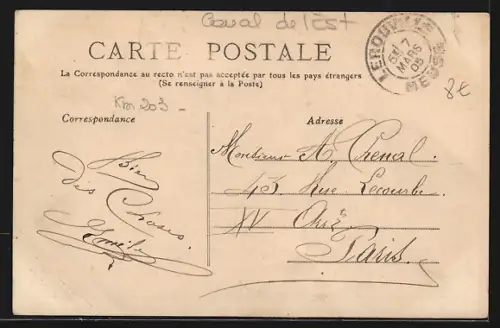 Canal de l'Est
CARTE POSTALE
La Correspondance au recto n'est pas acceptée par tous les pays étrangers
(Se renseigner à la Poste)
LEROUVILLE
7
MARS
05
MEUSE
8€
Km 203 -
Correspondance
Adresse
Bien
des Choses
Emile
Monsieur A. Chenal
43, Rue Lecourbe
XV Arr.
Paris.